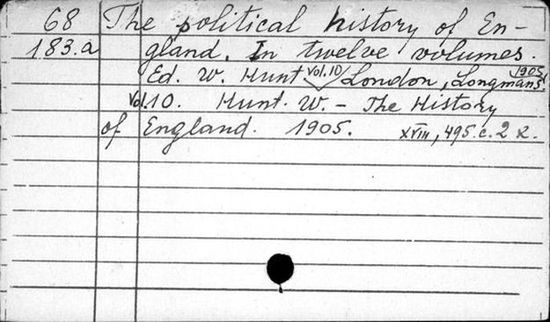 68 The political history of En-
183.a gland. In twelve volumes.
Ed. W. Hunt Vol. 10/London, Longmans, 1905.
Vol. 10. Hunt. W. - The History
of England. 1905. XVIII, 495 c. 2 к.